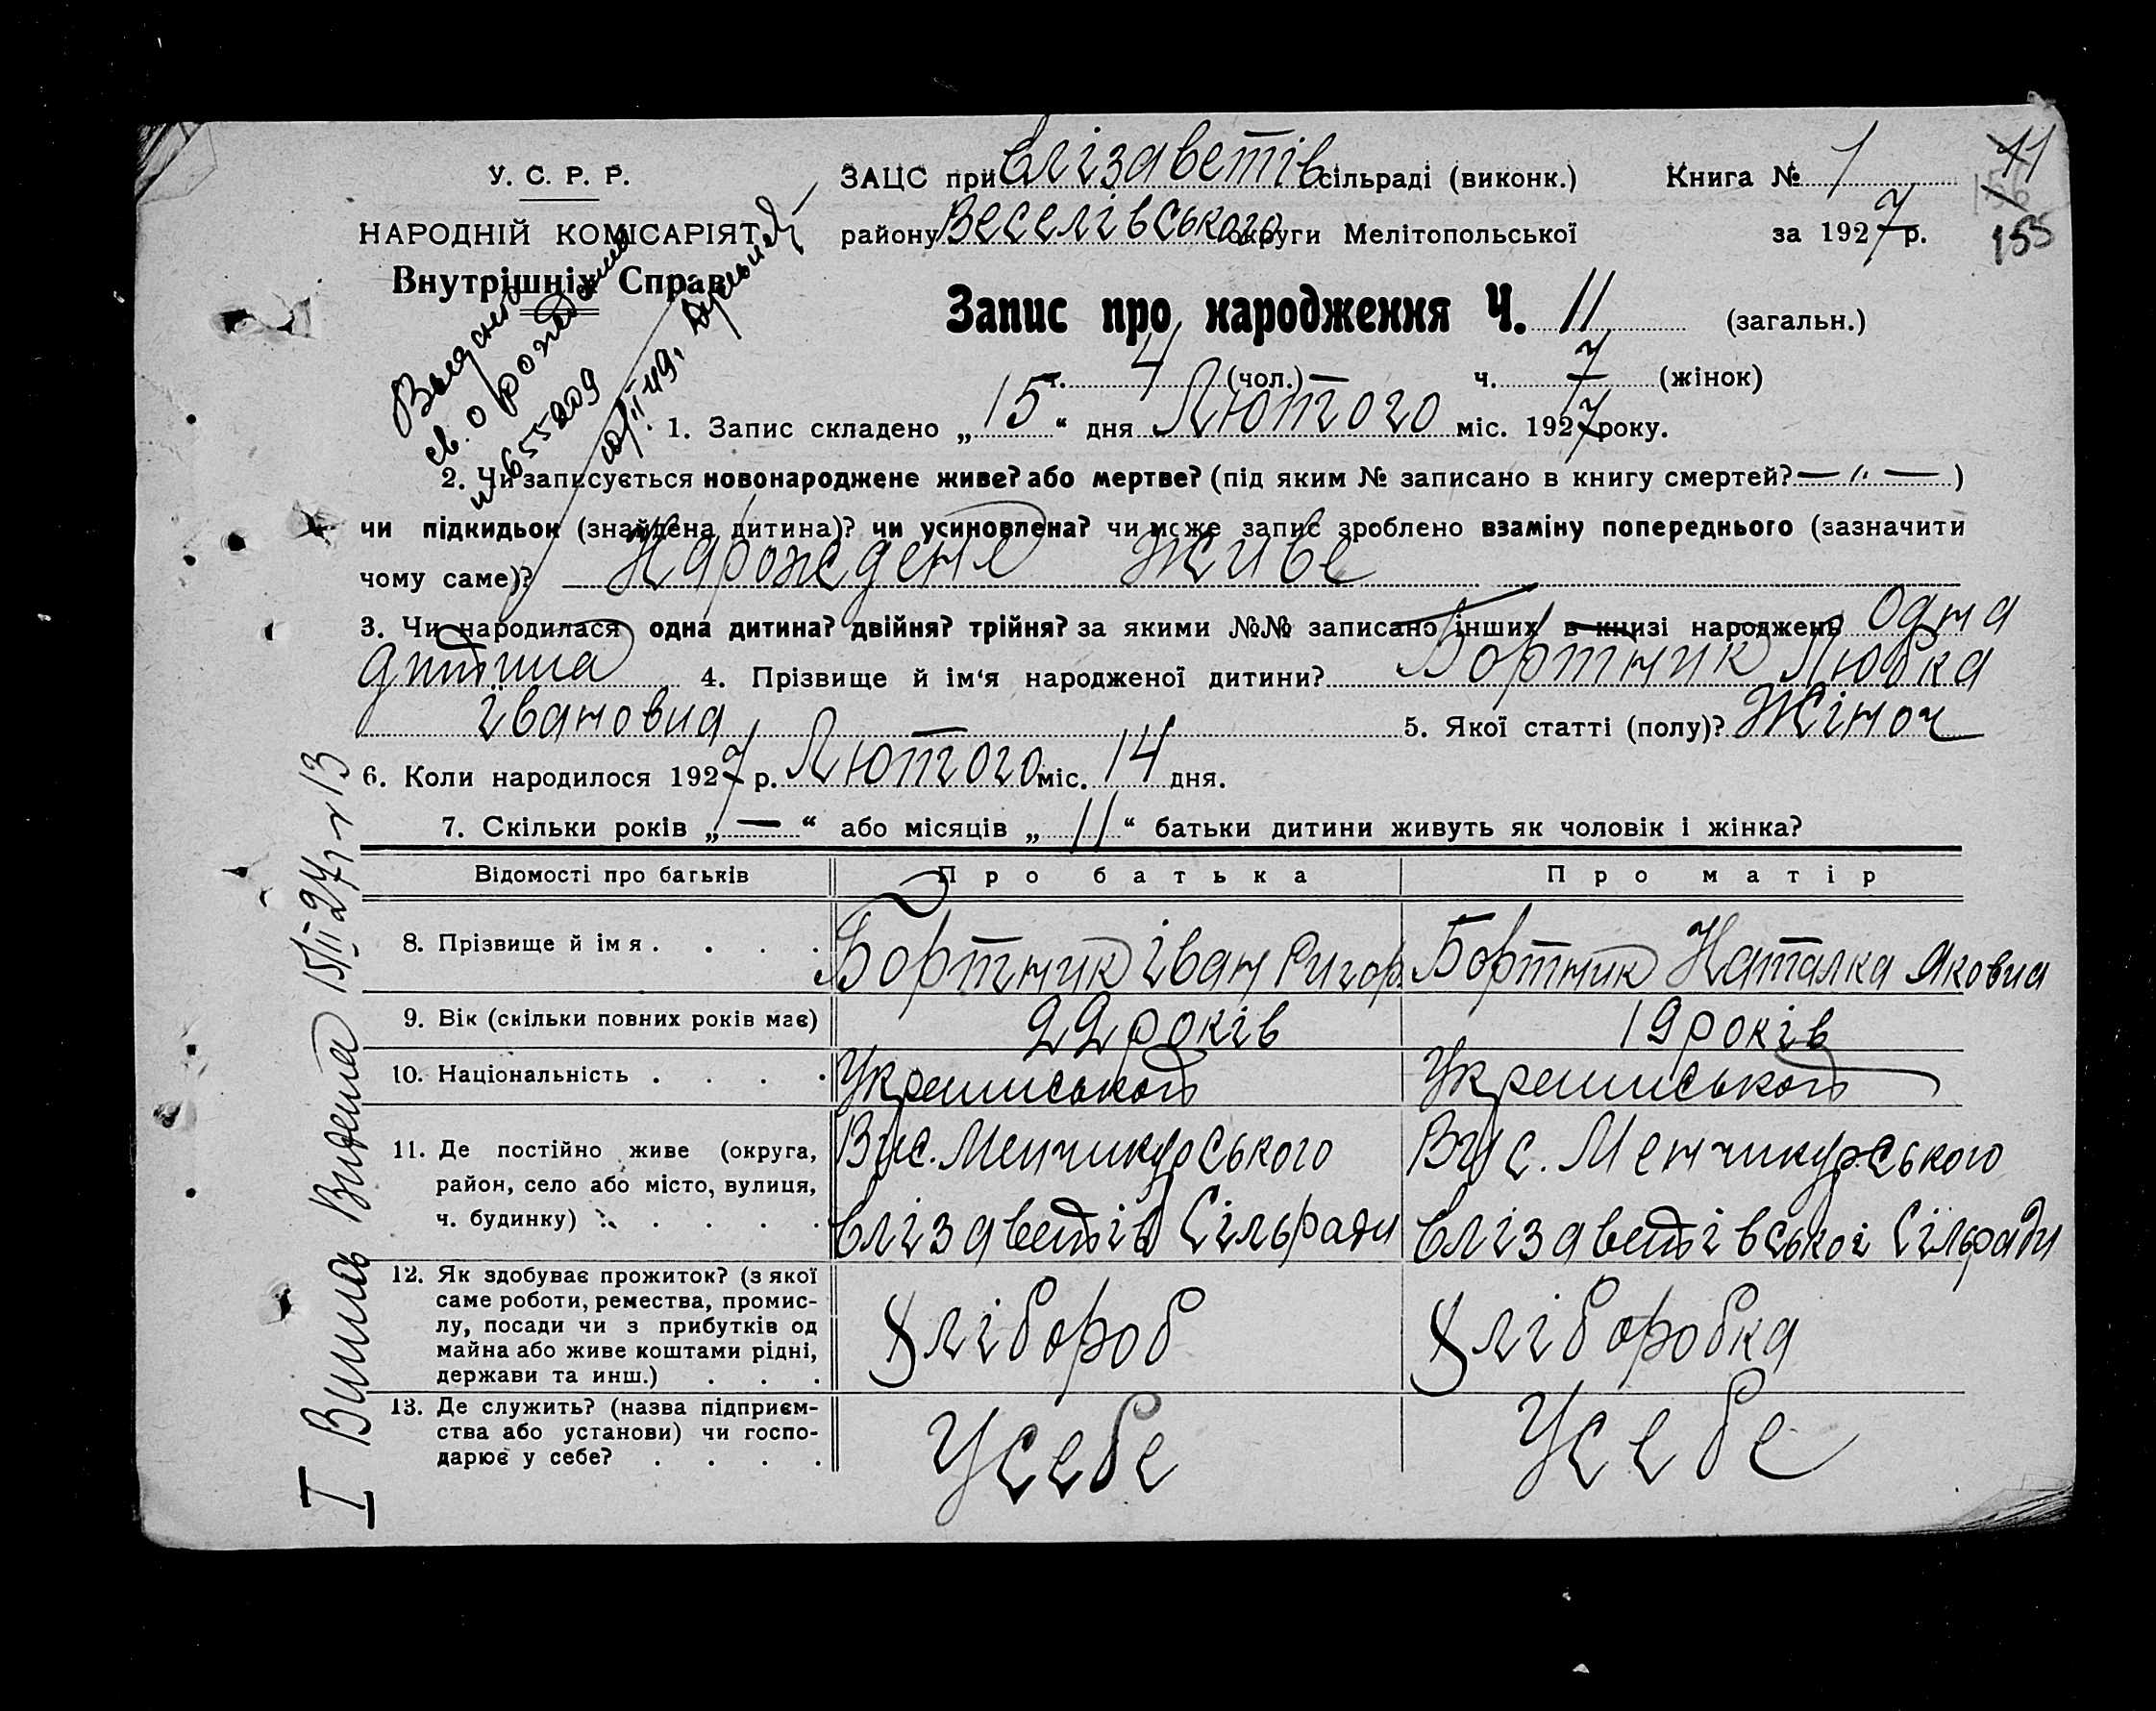 У. С. Р. Р.
НАРОДНІЙ КОМІСАРІЯТ
Внутрішніх Справ
ЗАЦС при Єлізаветів сільраді (виконк.)
району Веселівського округи Мелітопольської
Книга № 1
за 1927 р.
11
155
Видано
св. о рождении
655209
Запис про народження Ч. 11 (загальн.)
ч. 4 (чол.) — ч. 7 (жінок)
1. Запис складено „15“ дня Лютого міс. 1927 року.
2. Чи записується новонароджене живе? або мертве? (під яким № записано в книгу смертей? — „ — )
чи підкидьок (знайдена дитина)? чи усиновлена? чи може запис зроблено взаміну попереднього (зазначити
чому саме)? Нарождене живе
3. Чи народилася одна дитина? двійня? трійня? за якими №№ записано інших в книзі народжень Одна
дитина 4. Прізвище й ім‘я народженої дитини? Бортник Любка
Івановна 5. Якої статті (полу)? Жіноч
6. Коли народилося 1927 р. Лютого міс. 14 дня.
7. Скільки років „—“ або місяців „11“ батьки дитини живуть як чоловік і жінка?
Відомості про батьків Про батька Про матір
8. Прізвище й імя . . . . Бортник Іван Ригор. Бортник Наталка Яковна
9. Вік (скільки повних років має) 22 років 19 років
10. Національність . . . . Украинськоі Украинськоі
11. Де постійно живе (округа,
район, село або місто, вулиця,
ч. будинку) . . . . .
Вис. Менчикурського
Єлізаветів Сільради
Вис. Менчикурського
Єлізаветівськоі Сільради
12. Як здобуває прожиток? (з якої
саме роботи, ремества, промис-
лу, посади чи з прибутків од
майна або живе коштами рідні,
держави та инш.) . . .
Хлібороб Хліборобка
13. Де служить? (назва підприєм-
ства або установи) чи госпо-
дарює у себе? . . . .
У себе У себе
I Випись Видана 15/II 27 р. № 13